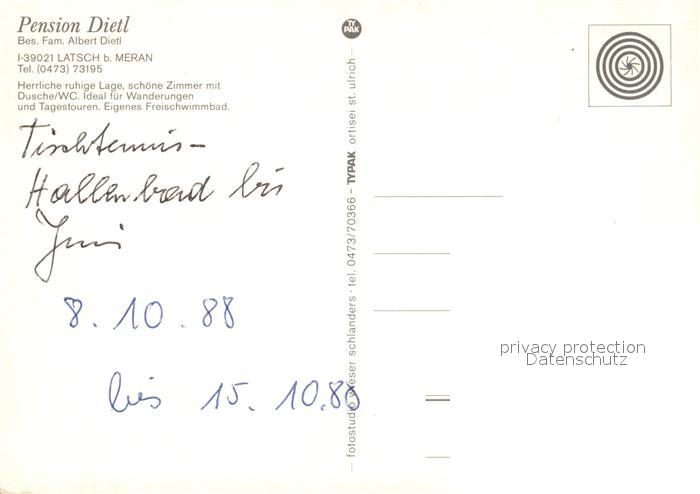 Pension Dietl
Bes. Fam. Albert Dietl
I-39021 LATSCH b. MERAN
Tel. (0473) 73195
Herrliche ruhige Lage, schöne Zimmer mit
Dusche/WC. Ideal für Wanderungen
und Tagestouren. Eigenes Freischwimmbad.
Tischtennis-
Hallenbad bis
Juni
8. 10. 88
bis 15. 10.88
TY
PAK
fotostudio wieser schlanders · tel. 0473/70366 – TYPAK ortisei st. ulrich
privacy protection
Datenschutz